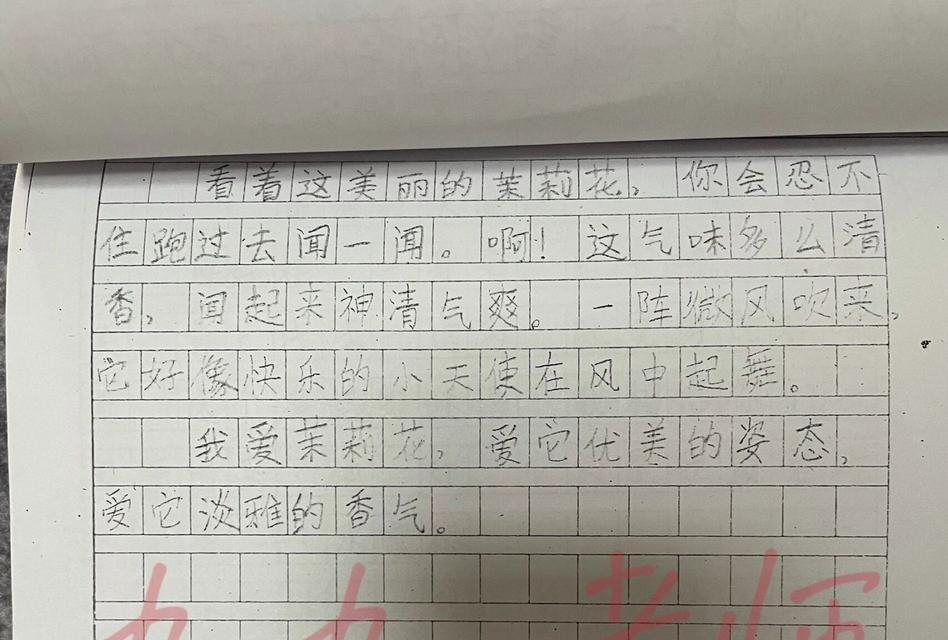 看着这美丽的茉莉花，你会忍不
住跑过去闻一闻。啊！这气味多么清
香，闻起来神清气爽。一阵微风吹来，
它好像快乐的小天使在风中起舞。
我爱茉莉花，爱它优美的姿态，
爱它淡雅的香气。